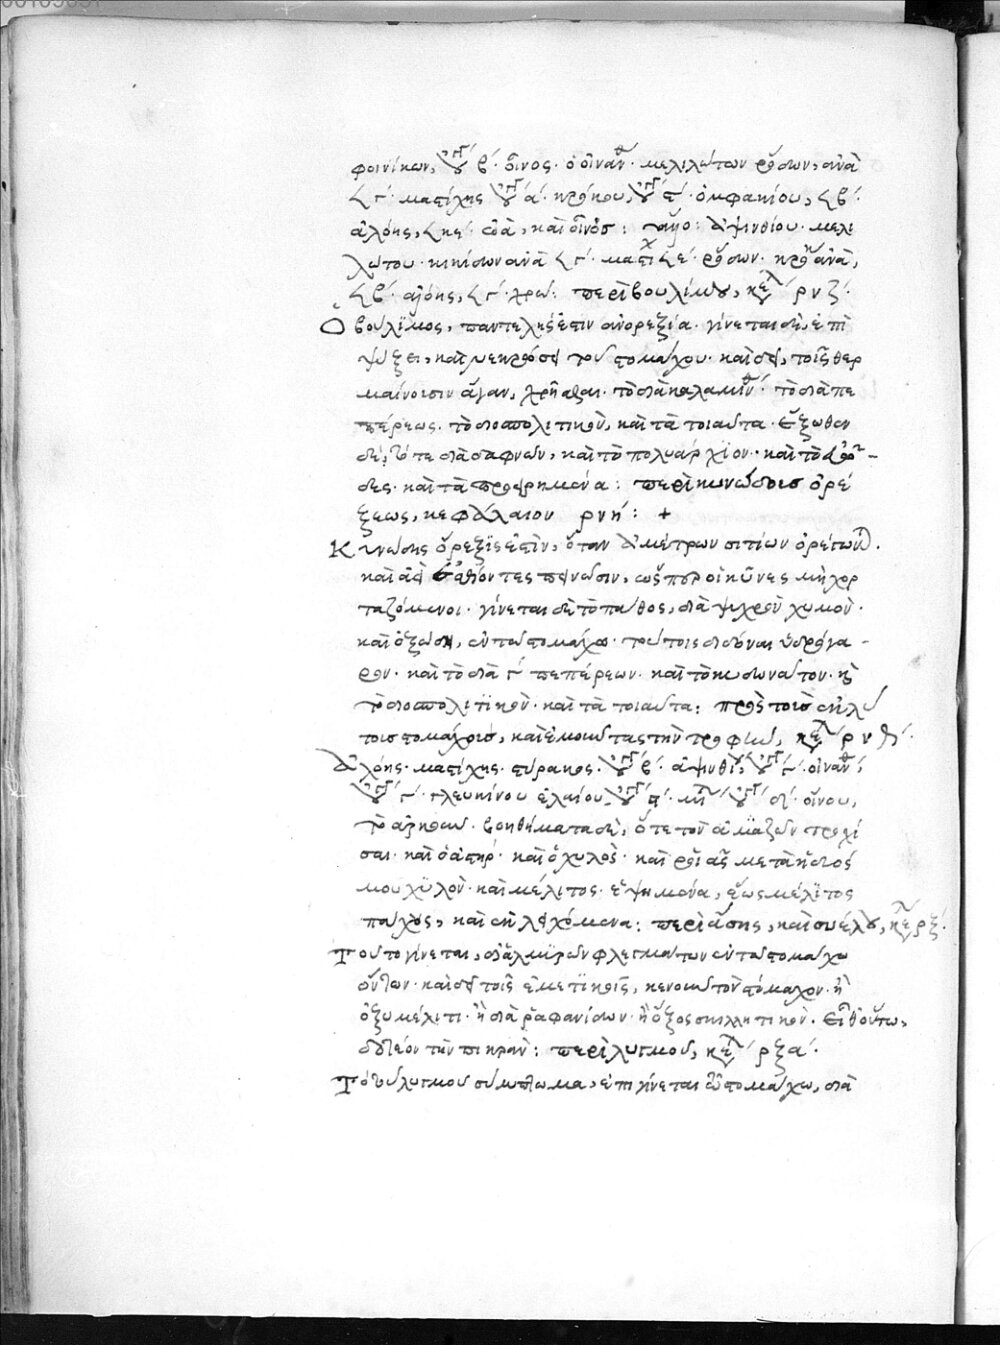 φοινίκων, β΄· οἶνος· ὁ οἰνάν· μελιλώτων ῥόδων, ἀνὰ
γ΄· μαστίχης α΄· κρόκου, ς΄· ὀμφακίου, β΄·
ἀλόης, καὶ οἶνος: ἄλλο: ἀψινθίου· μελι
λώτου· κικίδων ἀνὰ γ΄· μαστίχ ε΄· ῥόδων· κρό ἀνὰ,
β΄· ἀλόης, γ΄· χρῶ: περὶ βουλίμου, κεφ ρνζ΄·
Ὁ βούλιμος, παντελής ἐστιν ἀνορεξία· γίνεται δὲ, ἐπὶ
ψύξει, καὶ νεκρώσει τοῦ στομάχου· καὶ δεῖ, τοῖς θερ
μαίνουσιν ἄγαν, χρῆσθαι· τὸ διὰ καλαμίνθ· τὸ διὰ πε
πέρεως· τὸ διοσπολιτικὸν, καὶ τὰ τοιαῦτα· ἔξωθεν
δὲ, τό τε διὰ δαφνίδων, καὶ τὸ πολυάρχιον· καὶ τὸ
δες· καὶ τὰ προειρημένα: περὶ κυνώδους ὀρέ
ξεως, κεφάλαιον ρνη΄: +
Κυνώδης ὄρεξίς ἐστιν, ὅταν ἀμέτρων σιτίων ὀρέγων
καὶ ἀεὶ ἐσθίοντες πεινῶσιν, ὥσπερ οἱ κύνες μὴ χορ
ταζόμενοι· γίνεται δὲ τὸ πάθος, διὰ ψυχρὸν χυμὸν·
καὶ ὀξώδη, ἐν τῷ στομάχῳ· τούτοις διδόναι ὑδρόγα-
ρον· καὶ τὸ διὰ γ΄ πεπέρεων· καὶ τὸ κυδωνάτον· καὶ
τὸ διοσπολιτικὸν· καὶ τὰ τοιαῦτα: πρὸς τοὺς ἐκλύ
τους στομάχους, καὶ ἐμοῦντας τὴν τροφὴν, κεφ ρνθ΄·
Ἀλόης· μαστίχης· στύρακος· β΄· ἀψινθί, γ΄· οἰνάνθ·
γ΄· γλευκίνου ἐλαίου, οἴνου,
τὸ ἀρκοῦν· βοηθήματα δὲ, ὅ τε τῶν ἁμαξῶν τροχί
σαι· καὶ ὁ ἀστήρ· καὶ ὁ χυλὸς· καὶ ῥοιᾶς μετὰ ἡδυός
μου χυλὸν· καὶ μέλιτος· ἑψημένα, ἕως μέλιτος
πάχος, καὶ ἐκλειχόμενα: περὶ ἄσης, καὶ σιέλου, κεφ ρξ΄·
Τοῦτο γίνεται, διὰ ἁλμυρῶν φλεγμάτων ἐν τῷ στομάχῳ
ὄντων· καὶ δεῖ τοῖς ἐμετικοῖς, κενοῦν τὸν στόμαχον· ἢ
ὀξυμέλιτι· ἢ διὰ ῥαφανίδων· ἢ ὄξος σκιλλητικὸν· εἶθ οὕτω,
δοτέον τὴν πικρὰν: περὶ λυγμοῦ, κεφ ρξα΄·
Τὸ τοῦ λυγμοῦ σύμπτωμα, ἐπιγίνεται τῷ στομάχῳ, διὰ